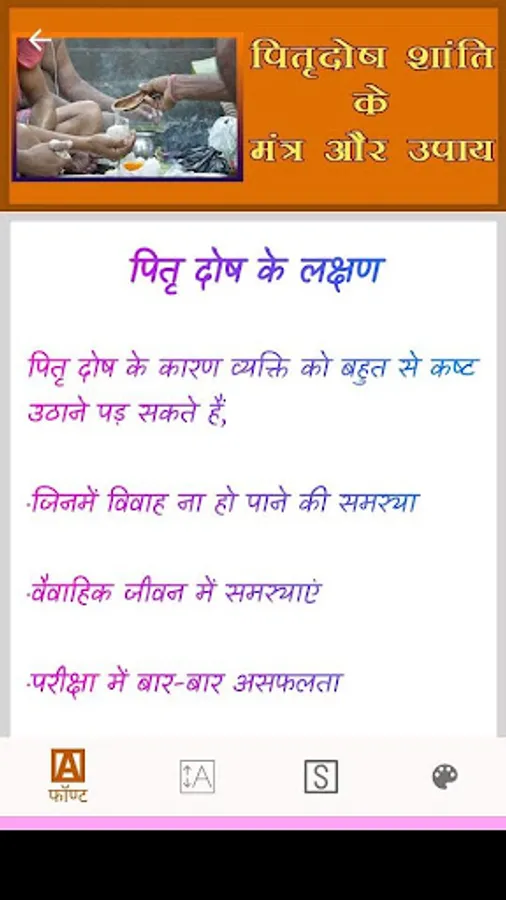 पितृदोष शांति
के
मंत्र और उपाय
पितृ दोष के लक्षण
पितृ दोष के कारण व्यक्ति को बहुत से कष्ट
उठाने पड़ सकते हैं,
·जिनमें विवाह ना हो पाने की समस्या
·वैवाहिक जीवन में समस्याएं
·परीक्षा में बार-बार असफलता
A A S
फॉण्ट